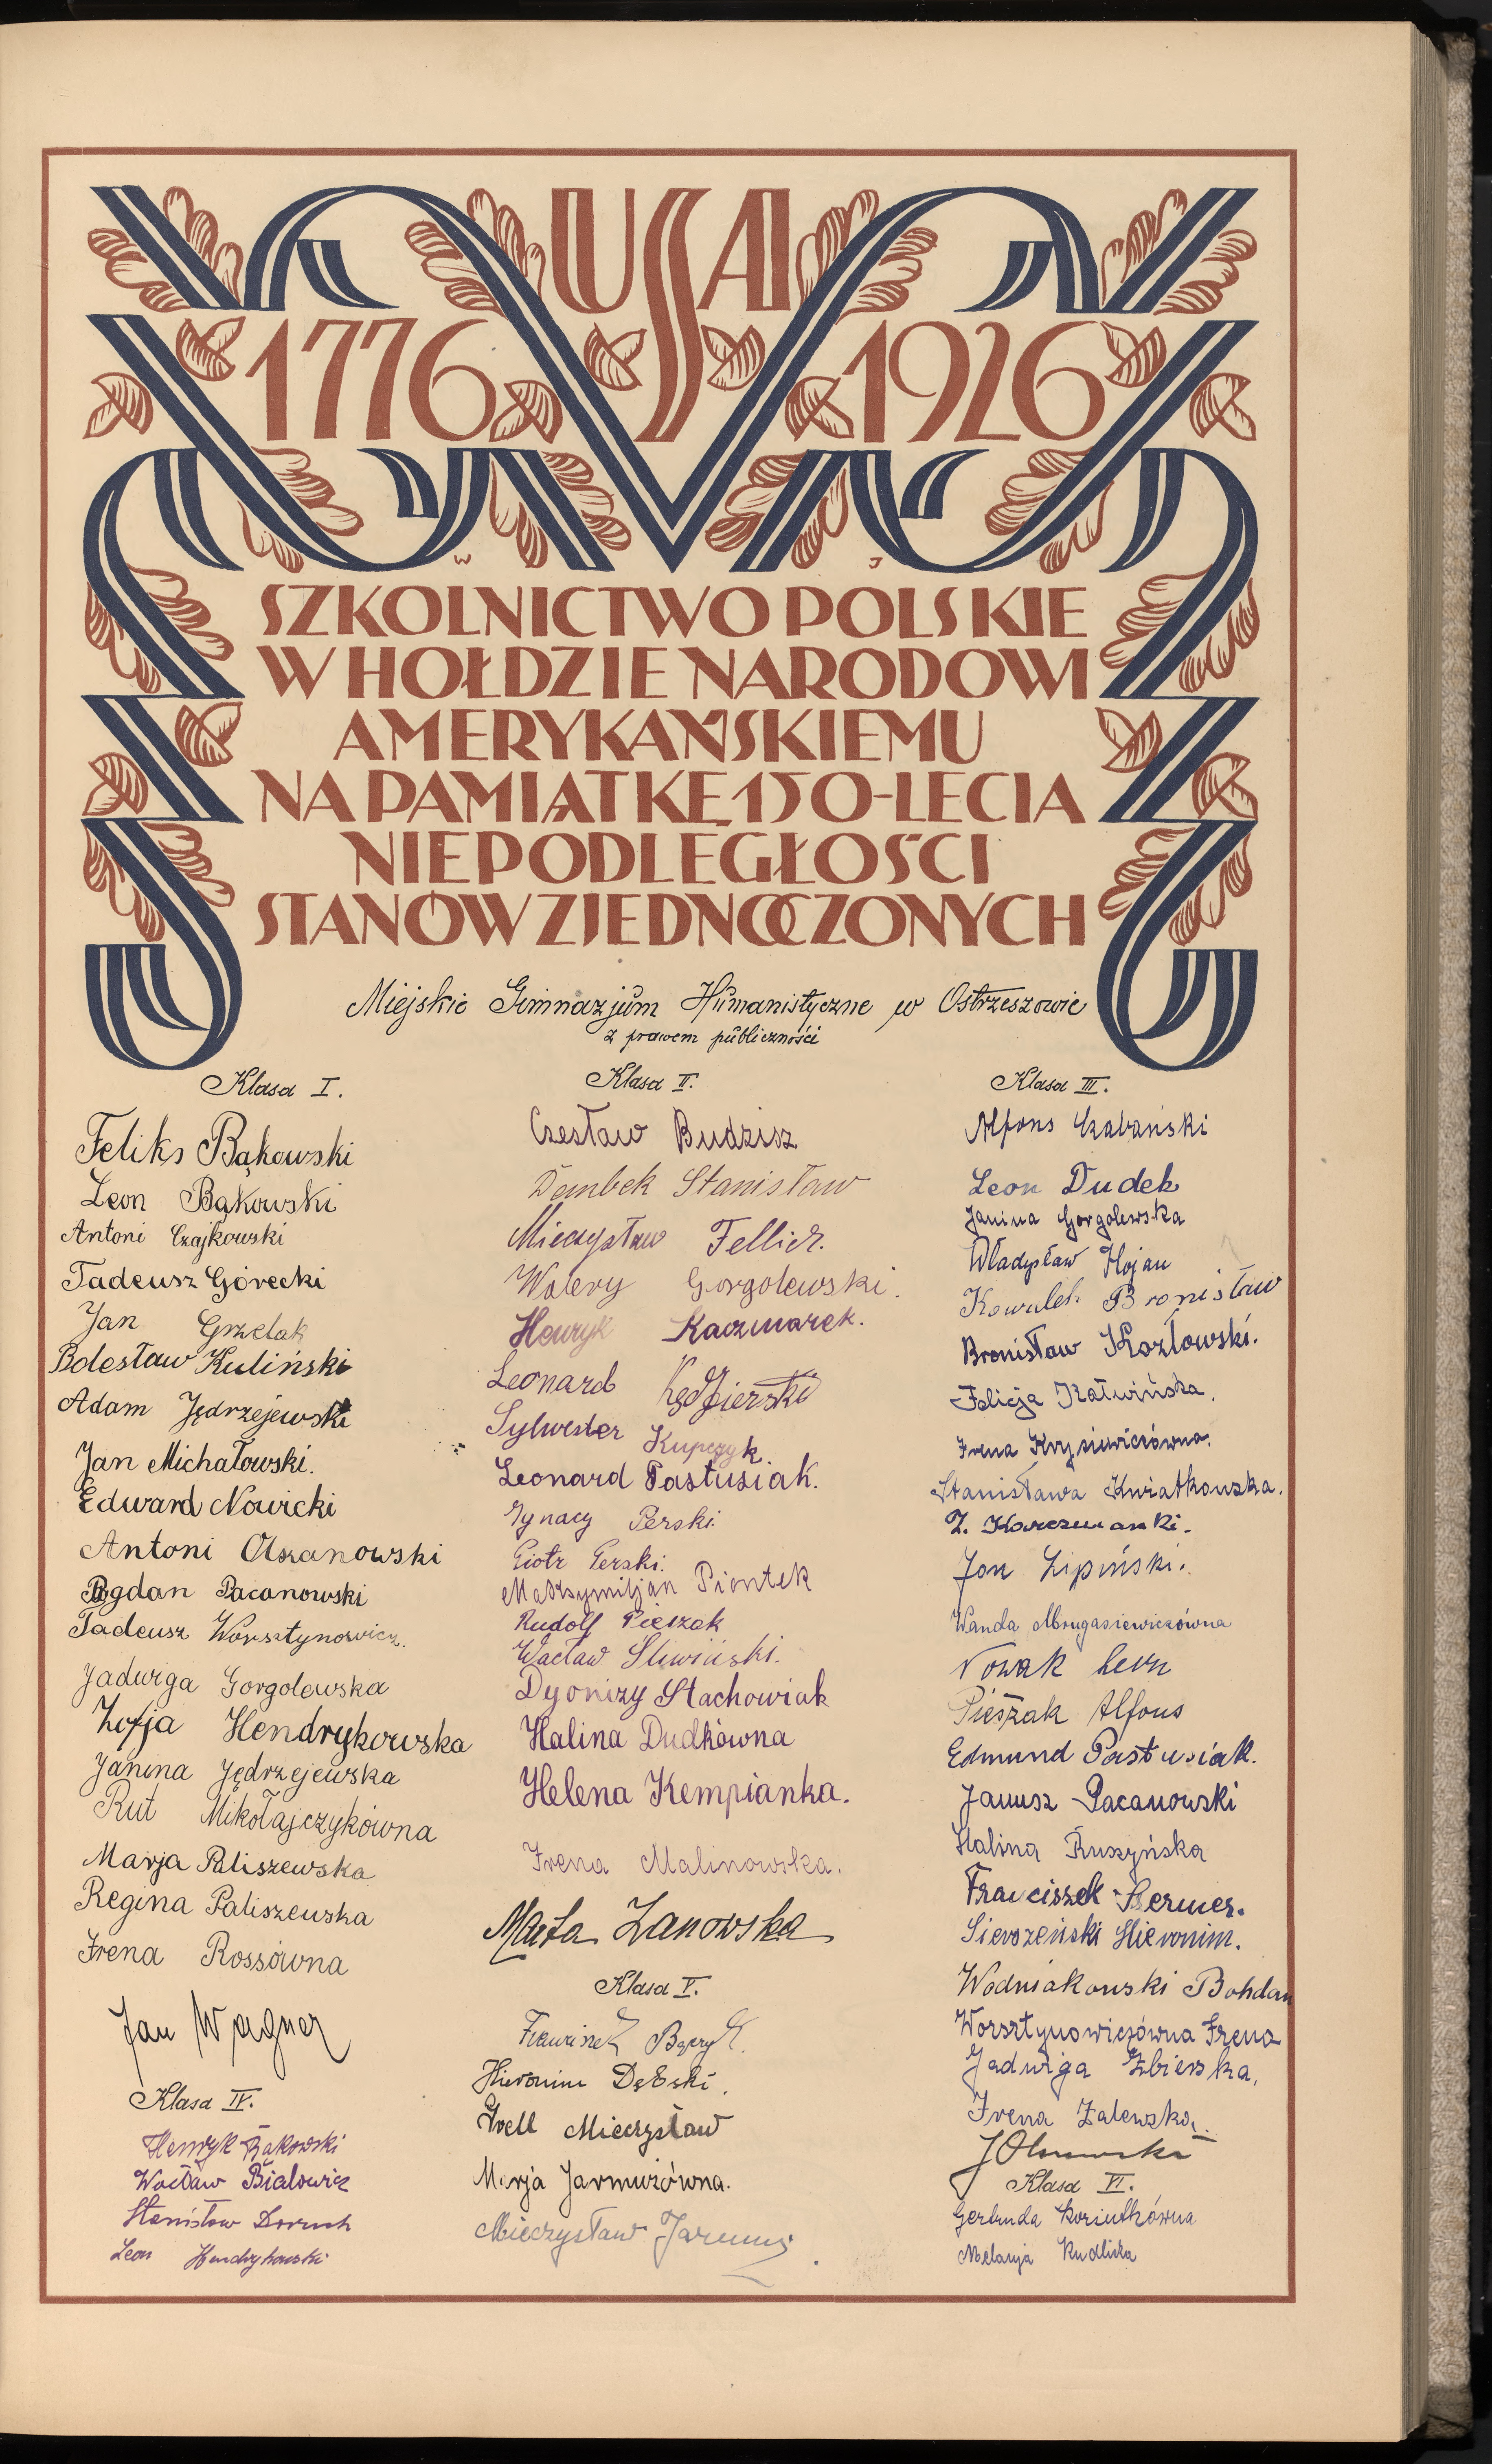 USA
1776 1926
W J
SZKOLNICTWO POLSKIE
W HOŁDZIE NARODOWI
AMERYKAŃSKIEMU
NA PAMIĄTKĘ 150-LECIA
NIEPODLEGŁOŚCI
STANÓW ZJEDNOCZONYCH
Miejskie Gimnazjum Humanistyczne w Ostrzeszowie
z prawem publiczności
Klasa I.
Feliks Bąkowski
Leon Bąkowski
Antoni Czajkowski
Tadeusz Górecki
Jan Grzelak
Bolesław Kuliński
Adam Jędrzejewski
Jan Michałowski.
Edward Nowicki
Antoni Olszanowski
Bogdan Pacanowski
Tadeusz Worsztynowicz.
Jadwiga Gorgolewska
Zofja Hendrykowska
Janina Jędrzejewska
Rut Mikołajczykówna
Marja Paliszewska
Regina Paliszewska
Irena Rossówna
Jan Wagner
Klasa IV.
Henryk Bąkowski
Wacław Białowicz
Stanisław Doruch
Leon Hendrykowski
Klasa II.
Czesław Budzisz
Dembek Stanisław
Mieczysław Fellier.
Walery Gorgolewski.
Henryk Kaczmarek.
Leonard Kędzierski
Sylwester Kupczyk
Leonard Pastusiak.
Ignacy Perski.
Piotr Perski.
Maksymiljan Piontek
Rudolf Pieszak
Wacław Śliwiński.
Dyonizy Stachowiak
Halina Dudkówna
Helena Kempianka.
Irena Malinowska.
Marta Zanowska
Klasa V.
Franciszek Bączyk.
Hieronim Dębski.
Grell Mieczysław
Marja Jarmużówna.
Mieczysław Jarmuż
Klasa III.
Alfons Czabański
Leon Dudek
Janina Gorgolewska
Władysław Hojan
Kowalek Bronisław
Bronisław Kozłowski.
Felicja Katwińska.
Irena Krysiewiczówna.
Stanisława Kwiatkowska.
Z. Karczmarski.
Jan Lipiński.
Wanda Mrugasiewiczówna
Nowak Leon
Pieszak Alfons
Edmund Pastusiak.
Janusz Pacanowski
Halina Ruszyńska
Franciszek Sermer.
Sieroszeński Hieronim.
Wodniakowski Bohdan
Worsztynowiczówna Irena
Jadwiga Zbierska.
Irena Zalewska.
Klasa VI.
Gertruda Koziutkówna
Melanja Kudlicka